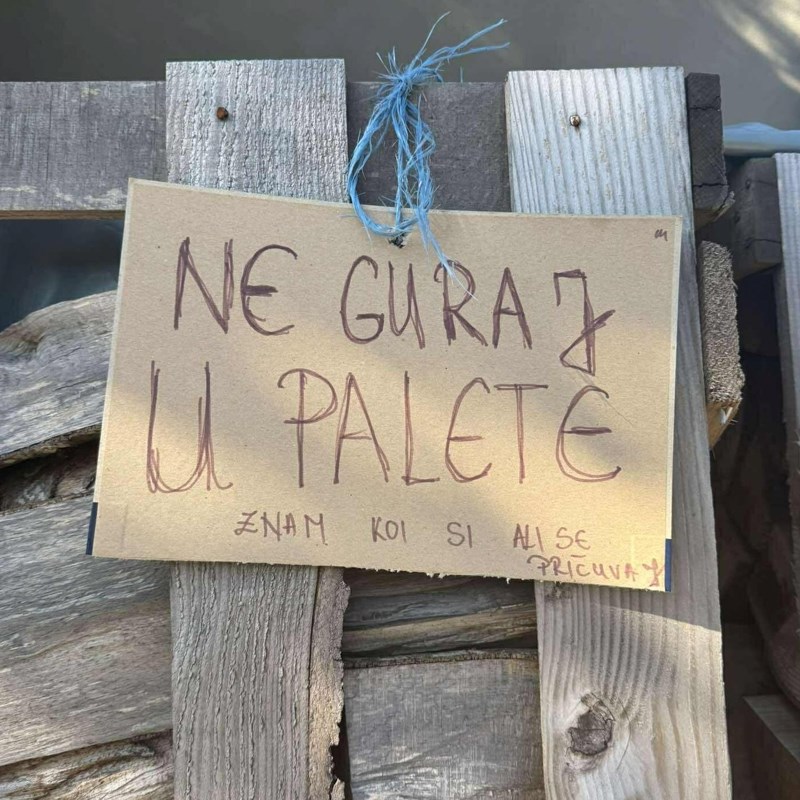 NE GURAJ
U PALETE
ZNAM KOI SI ALI SE
PRIČUVAJ